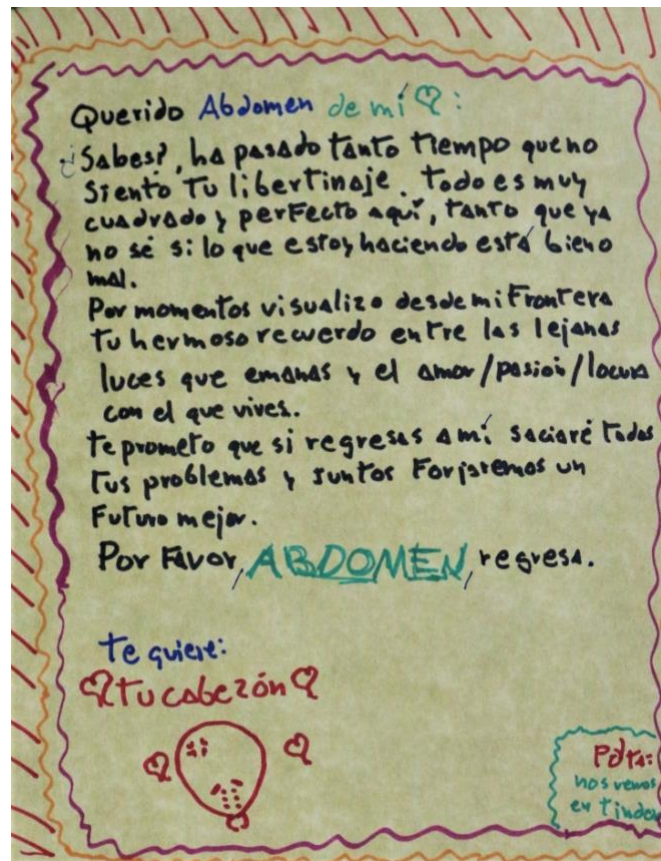 Querido Abdomen de mí ♡:
¿Sabes?, ha pasado tanto tiempo que no
siento tu libertinaje. Todo es muy
cuadrado y perfecto aquí, tanto que ya
no sé si lo que estoy haciendo está bien o
mal.
Por momentos visualizo desde mi Frontera
tu hermoso recuerdo entre las lejanas
luces que emanas y el amor/pasión/locura
con el que vives.
te prometo que si regresas a mí saciaré todos
tus problemas y juntos Forjaremos un
Futuro mejor.
Por Favor, ABDOMEN, regresa.
te quiere:
♡ tu cabezón ♡
Pdta:
nos vemos
en tinder